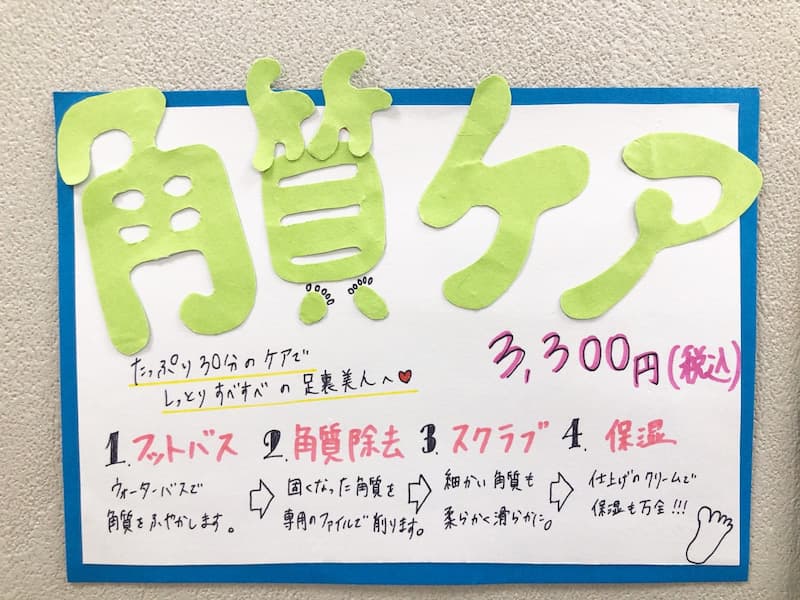 角質ケア
たっぷり30分のケアで
しっとりすべすべの足裏美人へ♥
3,300円(税込)
1.フットバス 2.角質除去 3.スクラブ 4.保湿
ウォーターバスで
角質をふやかします。
⇨
固くなった角質を
専用のファイルで削ります。
⇨
細かい角質も
柔らかく滑らかに。
⇨
仕上げのクリームで
保湿も万全!!!